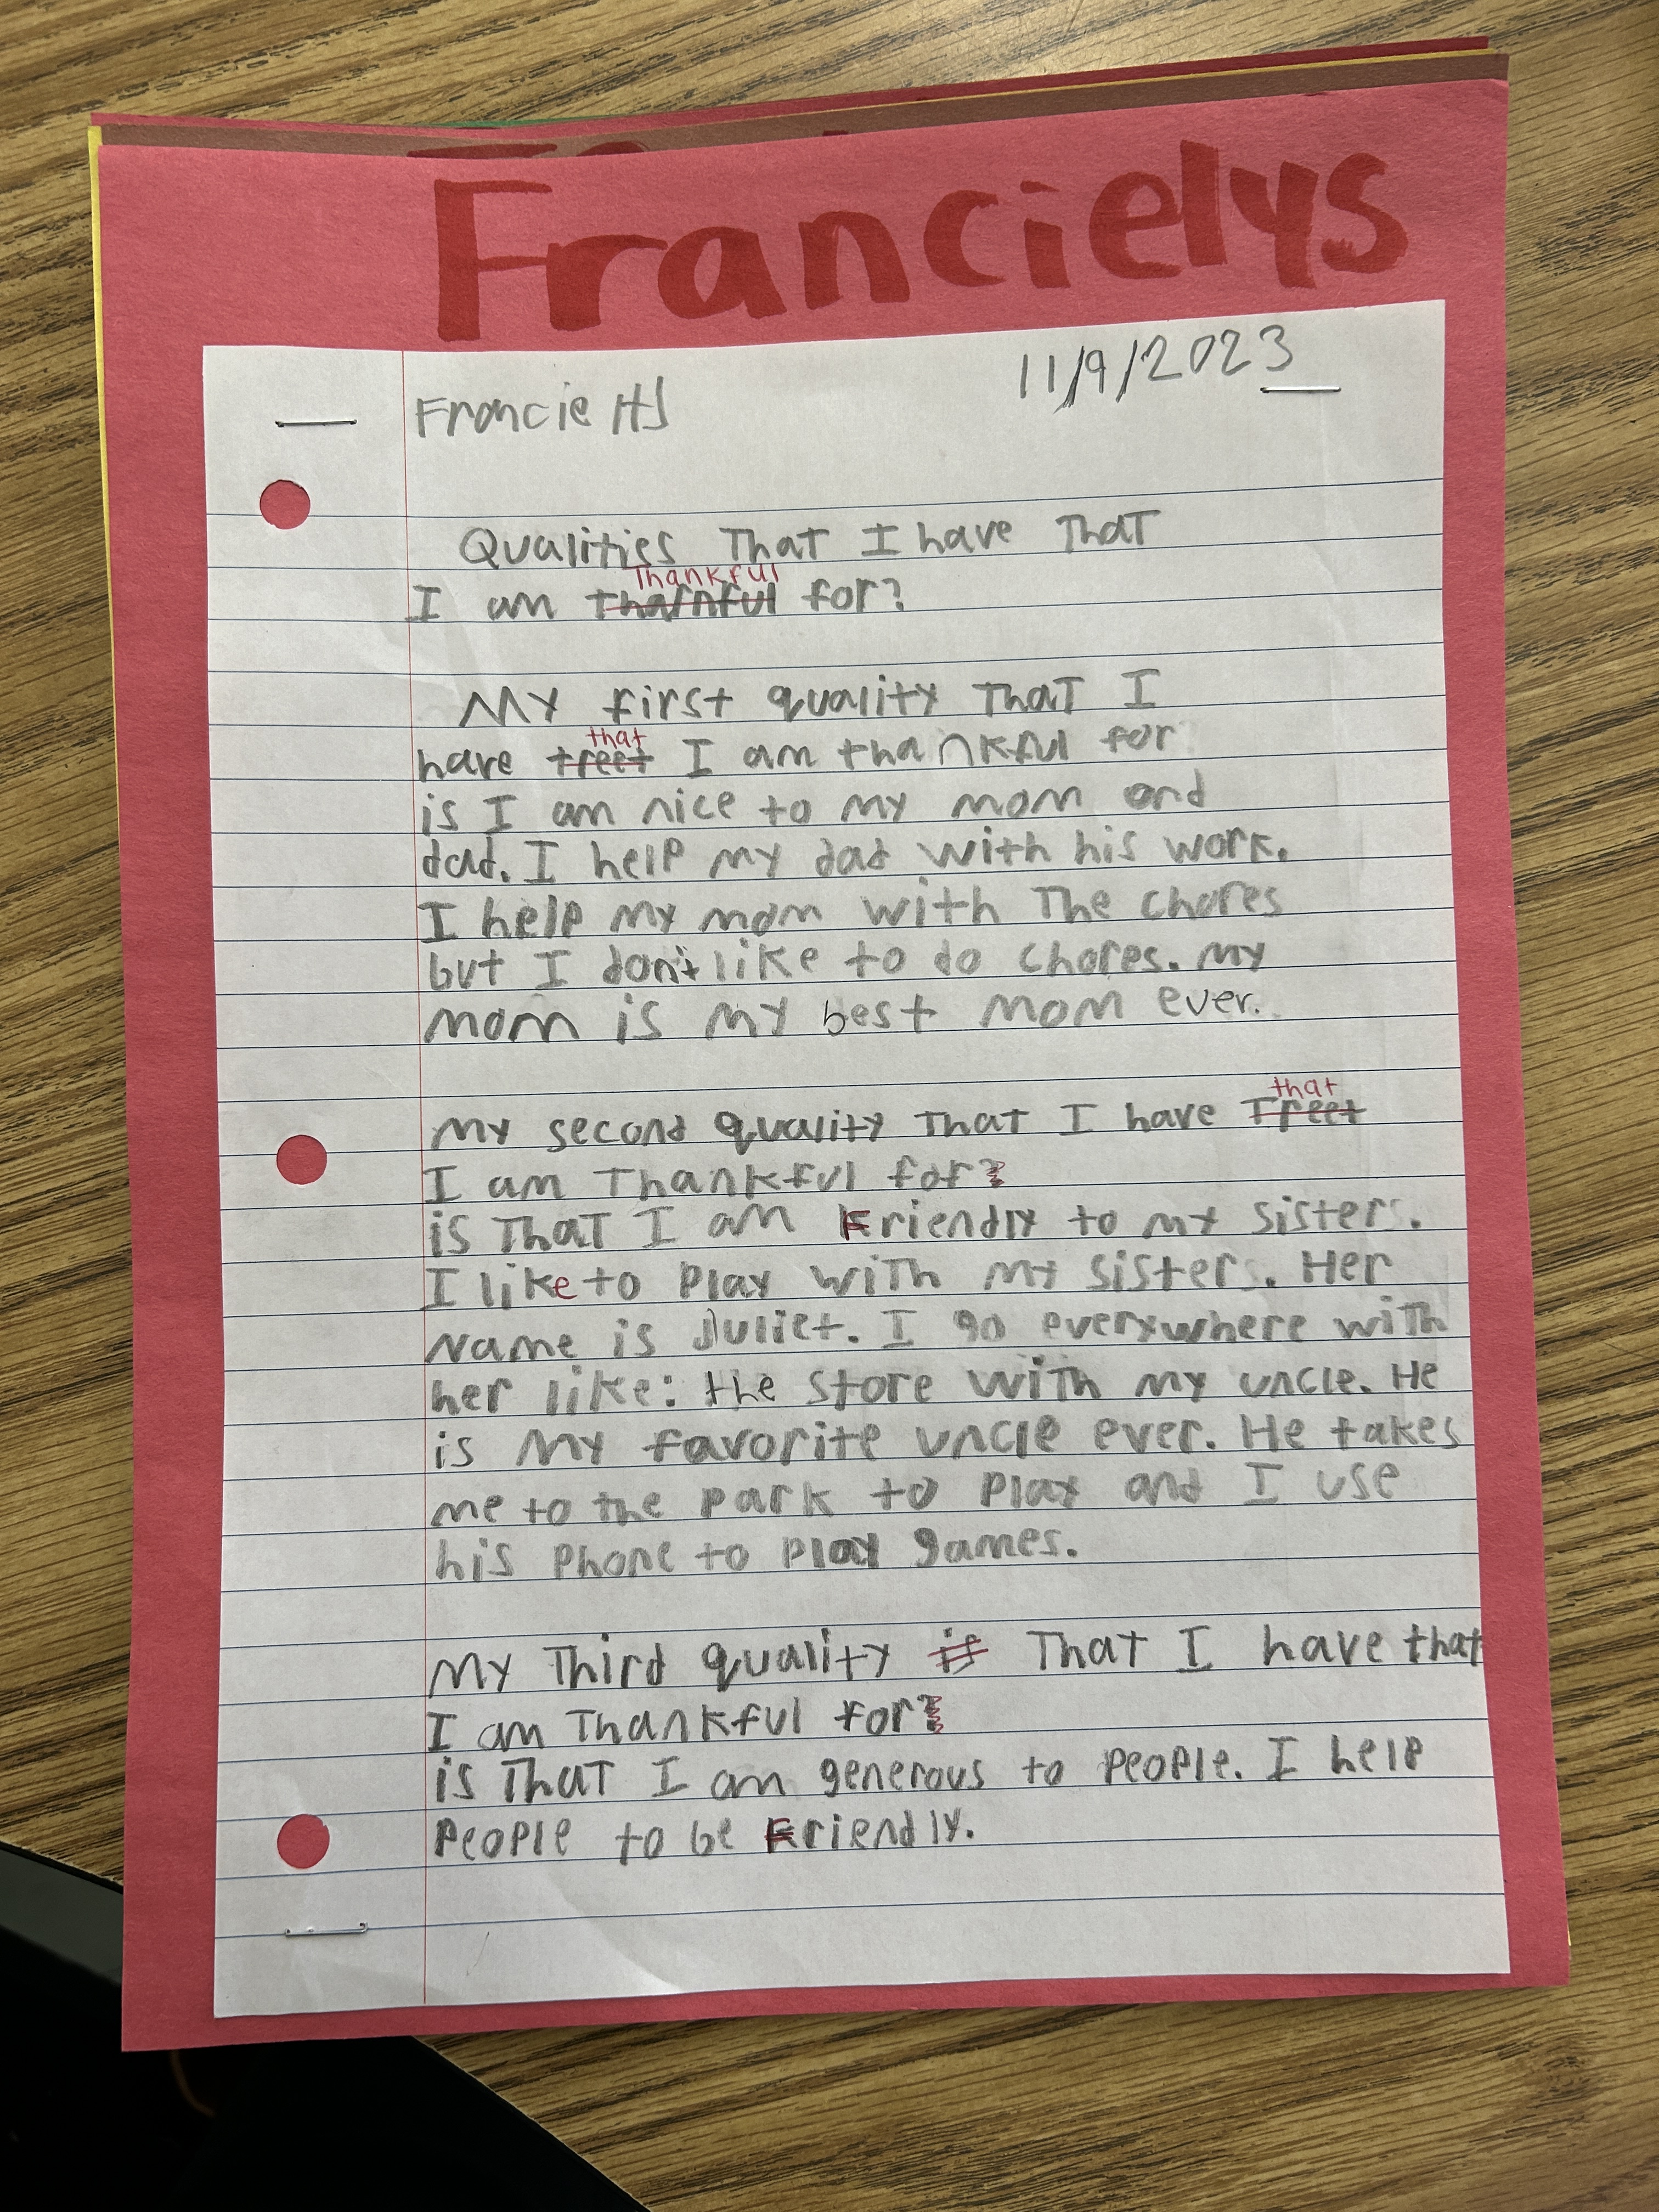 Francielys
11/9/2023
Qualities That I have That
Thankful
I am tharnful for?
My first quality that I
that
have treet I am thankful for
is I am nice to my mom and
dad. I help my dad with his work.
I help my mom with The chores
but I don't like to do chores. My
mom is my best mom ever.
that
My second quality That I have Treet
I am Thankful for?
is that I am Friendly to my sister.
I like to play with my sister. Her
Name is Juliet. I go everywhere with
her like: the store with my uncle. He
is my favorite uncle ever. He takes
me to the park to play and I use
his phone to play games.
My Third quality is That I have that
I am Thankful for?
is That I am generous to people. I help
People to be Friendly.